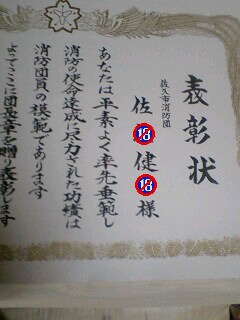 表彰状
佐久市消防団
佐 18 健 18 様
あなたは平素よく率先垂範し
消防の使命達成に尽力された功績は
消防団員の模範であります
よってここに団長章を贈り表彰します